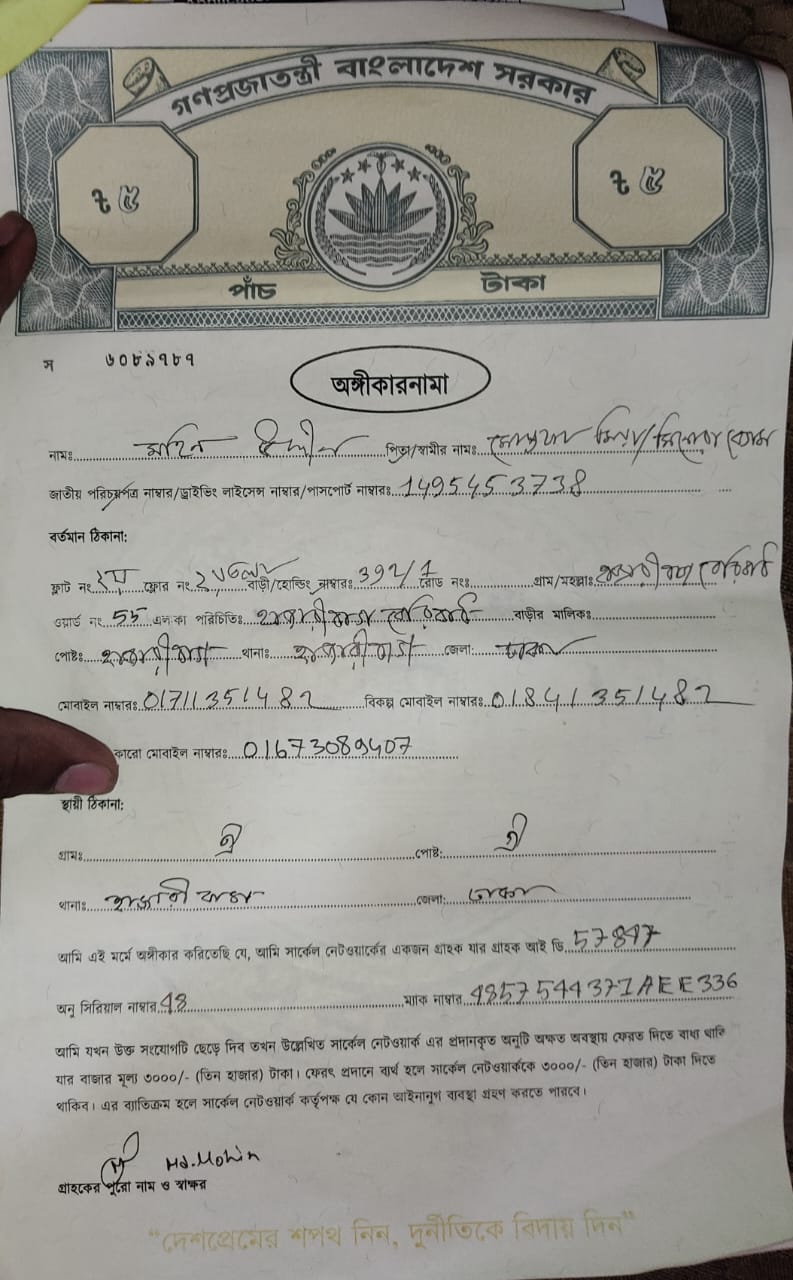 গণপ্রজাতন্ত্রী বাংলাদেশ সরকার
৳ ৫
৳ ৫
পাঁচ টাকা
স ৬০৮৯৭৮৭
অঙ্গীকারনামা
নামঃ মহিন উদ্দীন পিতা/স্বামীর নামঃ
জাতীয় পরিচয়পত্র নাম্বার/ড্রাইভিং লাইসেন্স নাম্বার/পাসপোর্ট নাম্বারঃ 1495453738
বর্তমান ঠিকানা:
ফ্লাট নং ফ্লোর নং বাড়ী/হোল্ডিং নাম্বারঃ 392/1 রোড নংঃ গ্রাম/মহল্লাঃ
ওয়ার্ড নং 55 এলাকা পরিচিতিঃ বাড়ীর মালিকঃ
পোষ্টঃ থানাঃ জেলা: ঢাকা
মোবাইল নাম্বারঃ 01711351482 বিকল্প মোবাইল নাম্বারঃ 01841351482
কারো মোবাইল নাম্বারঃ 01673089407
স্থায়ী ঠিকানা:
গ্রামঃ ঐ পোষ্ট: ঐ
থানাঃ জেলা: ঢাকা
আমি এই মর্মে অঙ্গীকার করিতেছি যে, আমি সার্কেল নেটওয়ার্কের একজন গ্রাহক যার গ্রাহক আই ডি 57847
অনু সিরিয়াল নাম্বার 48 ম্যাক নাম্বার 485754437IAEE336
আমি যখন উক্ত সংযোগটি ছেড়ে দিব তখন উল্লেখিত সার্কেল নেটওয়ার্ক এর প্রদানকৃত অনুটি অক্ষত অবস্থায় ফেরত দিতে বাধ্য থাকি
যার বাজার মূল্য ৩০০০/- (তিন হাজার) টাকা। ফেরৎ প্রদানে ব্যর্থ হলে সার্কেল নেটওয়ার্ককে ৩০০০/- (তিন হাজার) টাকা দিতে
থাকিব। এর ব্যতিক্রম হলে সার্কেল নেটওয়ার্ক কর্তৃপক্ষ যে কোন আইনানুগ ব্যবস্থা গ্রহণ করতে পারবে।
Md. Mohin
গ্রাহকের পুরো নাম ও স্বাক্ষর
"দেশপ্রেমের শপথ নিন, দুর্নীতিকে বিদায় দিন"